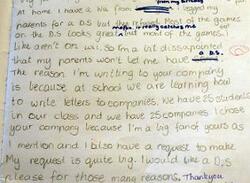 from my birthday
At home I have a Wii
parents for a DS but they refused. Most of the games
on the DS looks great but most of the games I
like aren't on wii. So I'm a bit dissapointed
that my parents won't let me have a DS.
The reason I'm writing to your company
is because at school we are learning how
to write letters to companies. We have 25 students
in our class and we have 25 companies. I chose
your company because I'm a big fan of yours as I
mention and I also have a request to make.
My request is quite big. I would like a DS
please for those many reasons. Thankyou